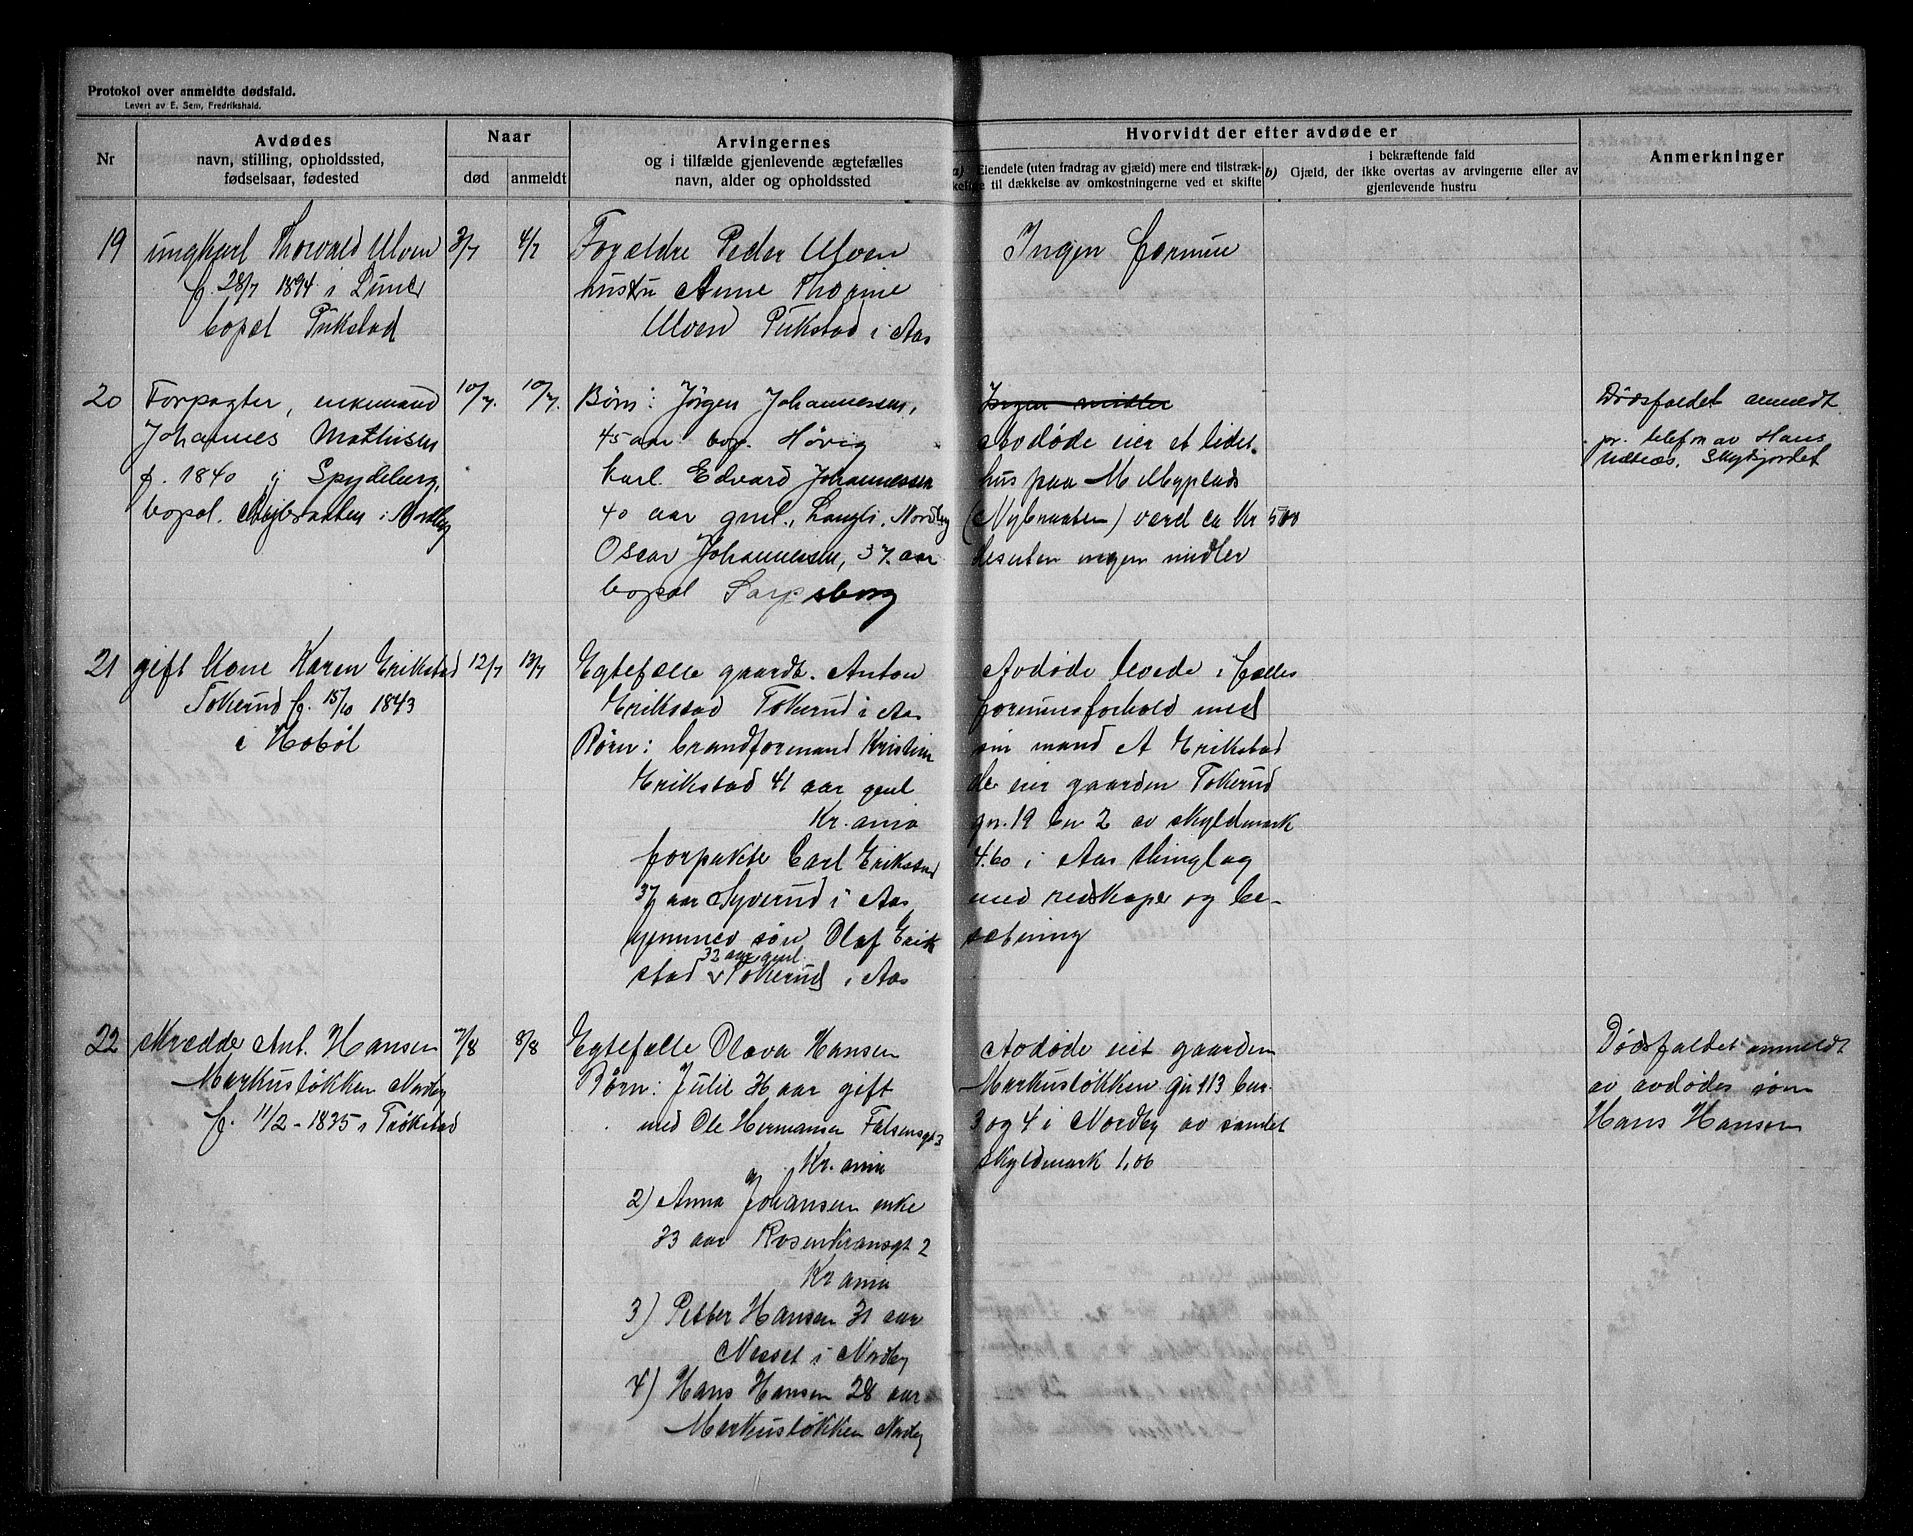 Protokol over anmeldte dødsfald.
Levert av E. Sem, Fredrikshald.
Nr
Avdødes
navn, stilling, opholdssted,
fødselsaar, fødested
Naar
død
anmeldt
Arvingernes
og i tilfælde gjenlevende ægtefælles
navn, alder og opholdssted
Hvorvidt der efter avdøde er
a) Eiendele (uten fradrag av gjæld) mere end tilstræk-
kelige til dækkelse av omkostningerne ved et skifte
i bekræftende fald
b) Gjæld, der ikke overtas av arvingerne eller av
gjenlevende hustru
Anmerkninger
19
ungkarl Thorvald Ulven
f. 28/7 1894 i
bopæl
3/7
4/7
Forældre Peder Ulven
hustru Anne Thorine
Ulven i Aas
Ingen formue
20
Forpagter, enkemand
Johannes Mathisen
f. 1840 i Spydeberg,
bopæl. i Nordby
10/7.
10/7.
Børn: Jørgen Johannessen,
45 aar bop. Høvig
Karl Edvard Johannessen
40 aar gml., Langli, Nordby
Oscar Johannessen, 37. aar
bopæl Sarpsborg
Ingen midler
Avdøde eier et litet
hus paa
(Nybraaten) værd ca Kr 500
desuten ingen midler
Dødsfaldet anmeldt
pr. telefon av Hans
21
gift Kone Karen Erikstad
Tokerud f. 15/10 1843
i Hobøl
12/7
13/7
Egtefælle gaardb. Anton
Erikstad Tokerud i Aas
Børn: brandformand Kristian
Erikstad 41 aar gml
Kr.ania
forpakter Carl Erikstad
37 aar Syverud i Aas
hjemmev søn Olaf Erik
stad 32 aar gml Tokerud i Aas
Avdøde levde i fælles
formuesforhold med
sin mand A Erikstad
de eier gaarden Tokerud
gn. 19 bn 2 av skyldmark
4.60 i Aas thinglag
med redskaper og be-
sætning
22
skrædder Ant. Hansen
Markusløkken Nordby
f. 11/2 - 1835 i Trøkstad
7/8
8/8
Egtefælle Olava Hansen
Børn: Julie aar gift
med Ole Hermansen Falsensgt 3
Kr. ania
2) Anna Johansen enke
33 aar Rosenkransgt 2
Kr ania
3) Petter Hansen 31 aar
Nesset i Nordby
4) Hans Hansen 28 aar
Markusløkken Nordby
Avdøde eiet gaarden
Markusløkken gn 113 bnr
3 og 4 i Nordby av samlet
skyldmark 1,06
Dødsfaldet anmeldt
av avdødes søn
Hans Hansen